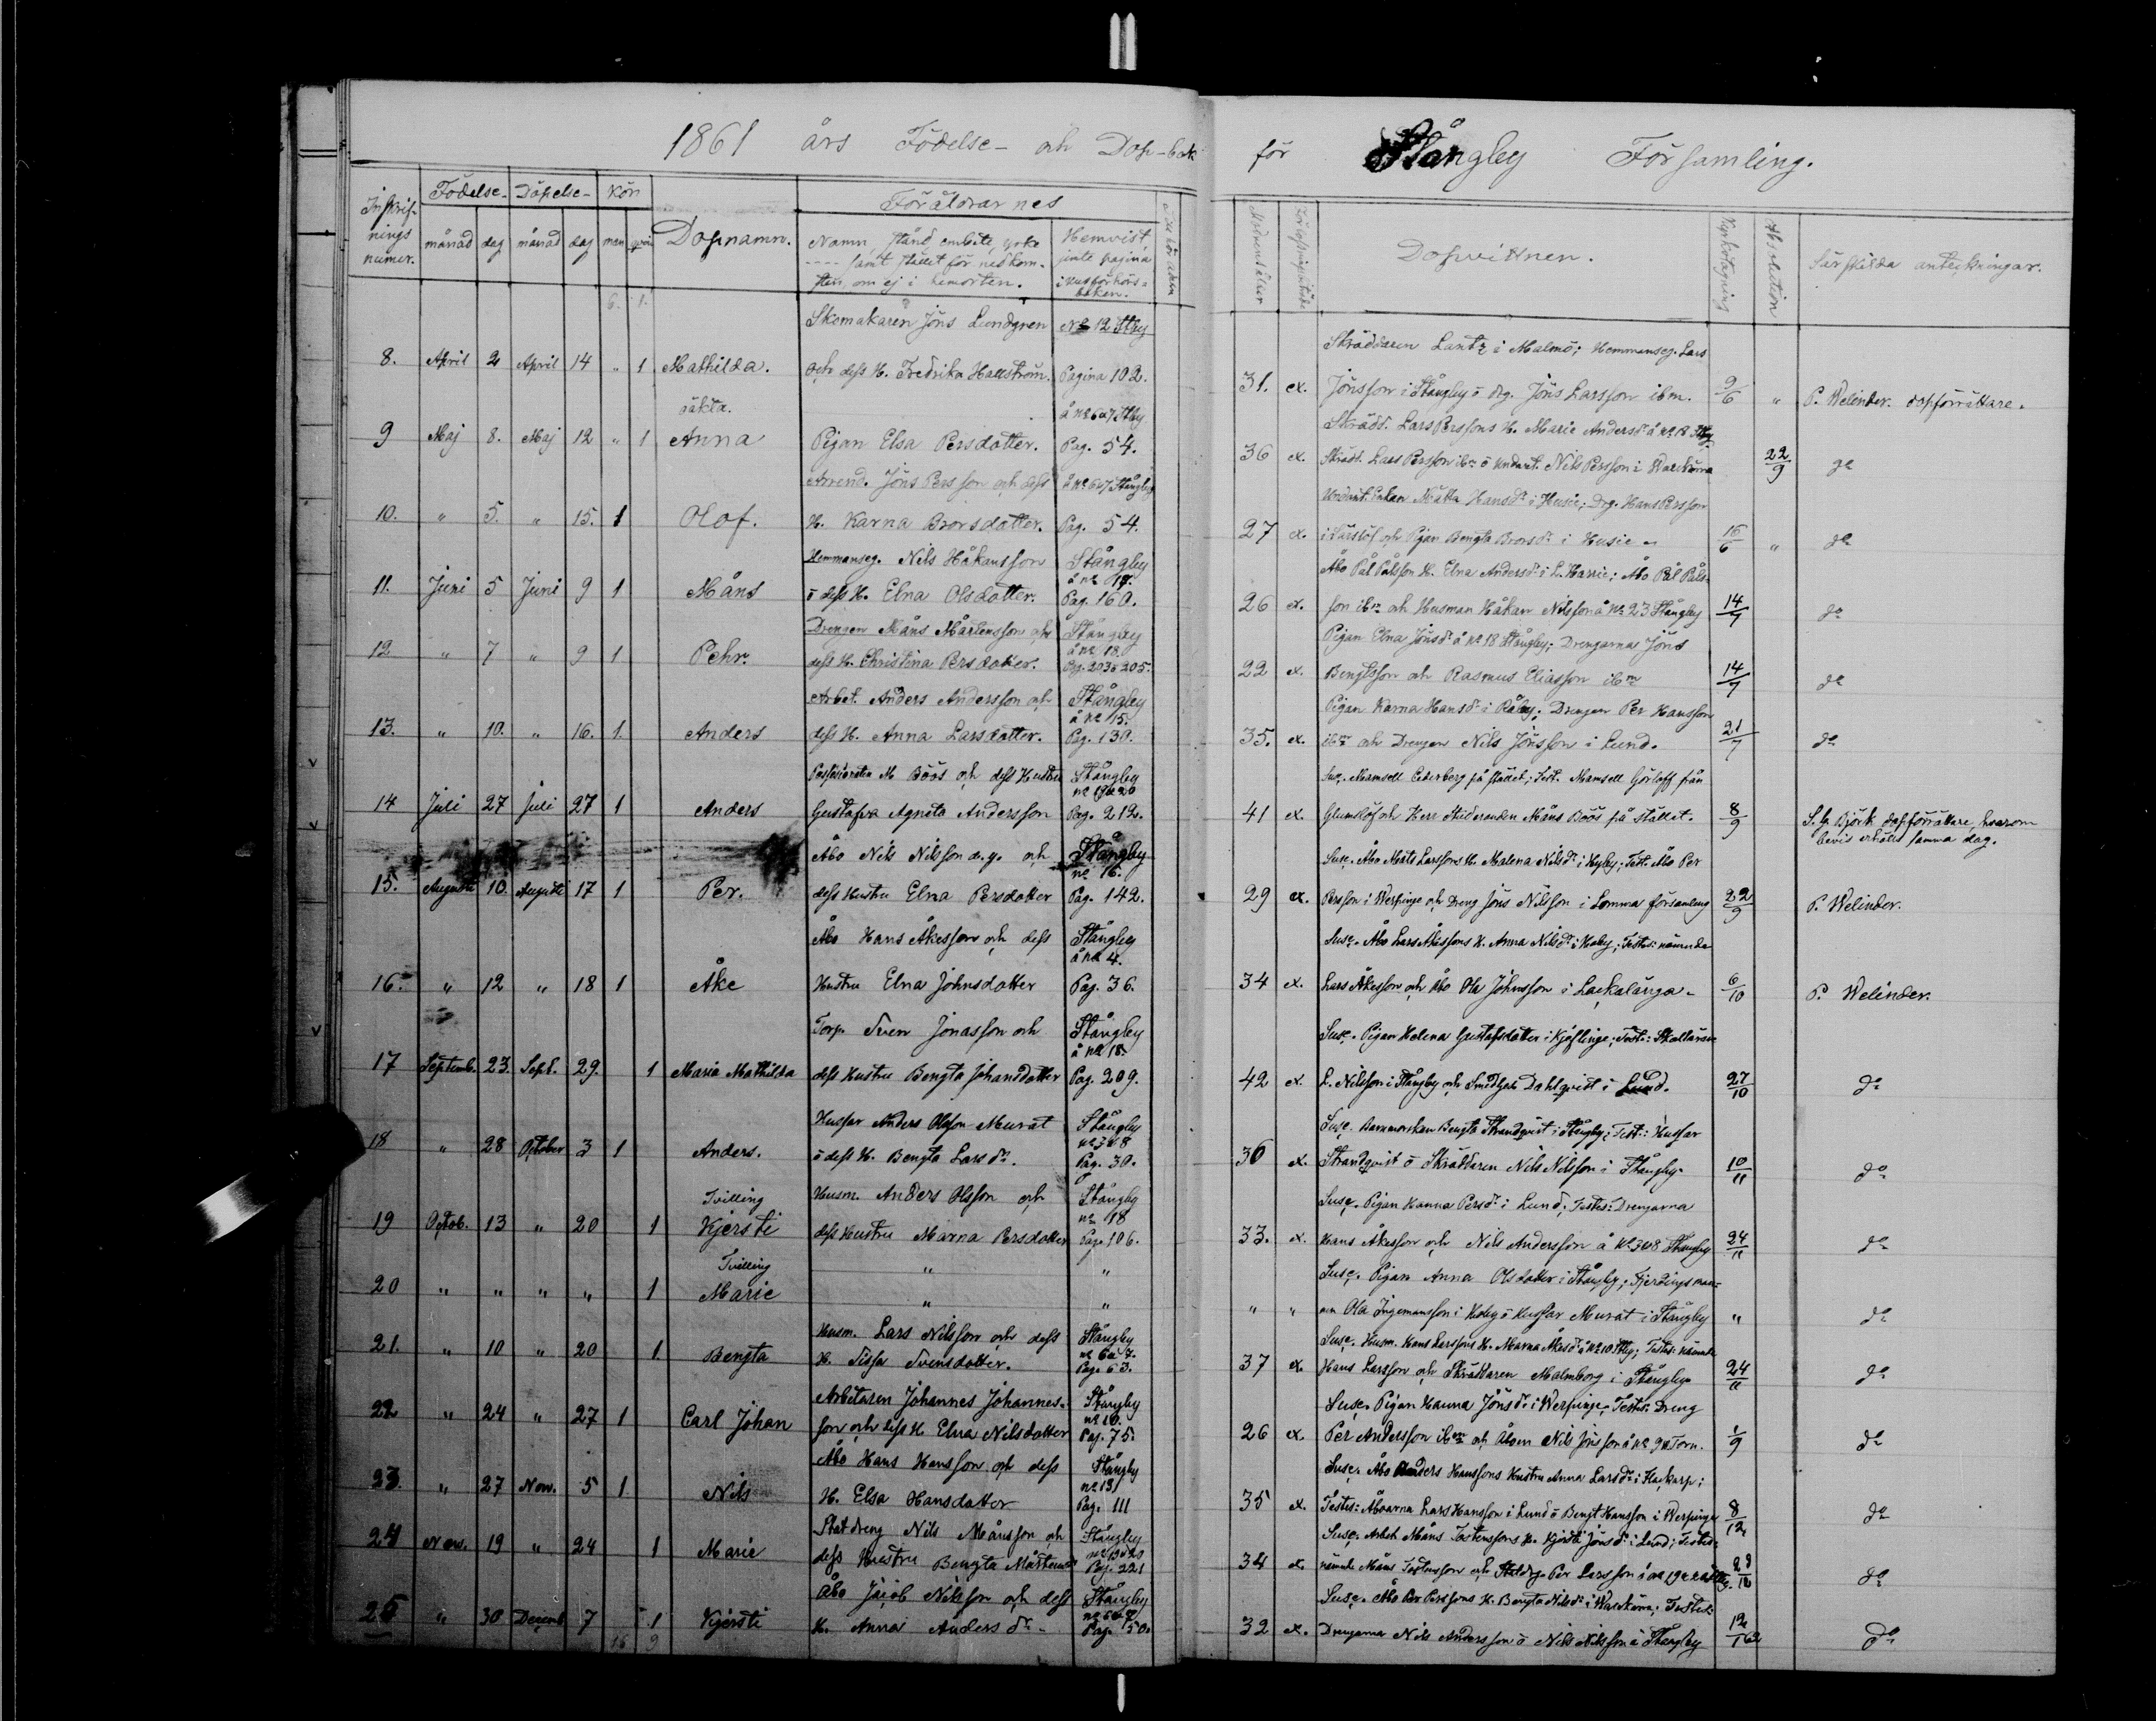 1861 års Födelse- och Dop-bok för Stångby Församling.
Inskrif-nings numer. Födelse- månad dag Döpelse- månad dag Kön man qvin Dopnamn. Föräldrarnes
Namn, stånd, embete, yrke samt stället för nedkomsten, om ej i hemorten. Hemvist jemte pagina i husförhörs-boken.
Moderns ålder Dopvittnen. Kyrkotagning Absolution Särskilda anteckningar.
6. 1.
Skomakaren Jöns Lundgren No 12 Stby
Skräddaren Lantz i Malmö; Hemmanseg. Lars
8. April 2 April 14 " 1 Mathilda. och dess H. Fredrika Hallström. Pagina 102.
31. ex. Jönsson i Stångby o drg. Jöns Larsson ibm. 9/6 " P. Welinder. dopförrättare.
oäkta. å No 6 o 7 Stby
Skrädd. Lars Perssons H. Marie Andersdr å No 18 Stby
9 Maj 8. Maj 12 " 1 Anna Pigan Elsa Persdotter. Pag. 54.
36 ex. Skrädd. Lars Persson ibm o Undant. Nils Persson i 22/9 do
Arrend. Jöns Persson och dess å No 6 o 7 Stångby
Undant. Enkan Mätta Hansdr i Husie; Drg. Hans Persson
10. " 5. " 15. 1 Olof. H. Karna Brorsdotter. Pag. 54.
27 ex. i Särslöf och Pigan Bengta Brorsdr i Husie. 16/6 " do
Hemmanseg. Nils Håkansson Stångby å No 17.
Åbo Pål Pålsson H. Elna Andersdr i L. Harrie; Åbo Pål Påls-
11. Juni 5 Juni 9 1 Måns o dess H. Elna Olsdotter. Pag. 160.
26 ex. son ibm och Husman Håkan Nilsson å No 23 Stångby 14/7 do
Drengen Måns Mårtensson och Stångby å No 18.
Pigan Elna Jönsdr å No 18 Stångby; Drengarna Jöns
12 " 7 " 9 1 Pehr. dess H. Christina Persdotter. Pag. 203 o 205.
22 ex. Bengtsson och Rasmus Eliasson ibm 14/7 do
Arbet. Anders Andersson och Stångby å No 15.
Pigan Karna Hansdr i Råby; Drengen Per Hansson
13. " 10. " 16. 1. Anders dess H. Anna Larsdotter. Pag. 130.
35. ex. ibm och Drengen Nils Jönsson i Lund. 21/7 do
M Böös och dess Hustru Stångby No 19 o 20
Susc. Mamsell Cederberg på stället; Test. Mamsell Görloff från
14 Juli 27 Juli 27 1 Anders Gustafva Agneta Andersson Pag. 212.
41 ex. och Herr Studeranden Måns Böös på stället. 8/9 S. G. Björk dopförrättare, hvarom
bevis erhölls samma dag.
Åbo Nils Nilsson d.y. och Stångby No 16.
Susc. Åbo Mats Larssons H. Malena Nilsdr i Hyby; Test. Åbo Per
15. Augusti 10. Augusti 17 1 Per. dess Hustru Elna Persdotter Pag. 142.
29 ex. Persson i Werpinge och Dreng Jöns Nilsson i Lomma församling 22/9 P. Welinder.
Åbo Hans Åkesson och dess Stångby å No 4.
Susc. Åbo Lars Åkessons H. Anna Nilsdr i Hoby; Testes: nämnde
16. " 12 " 18 1 Åke Hustru Elna Johnsdotter Pag. 36.
34 ex. Lars Åkesson och Åbo Ola Johnsson i Lackalänga. 6/10 P. Welinder.
Torp. Sven Jonasson och Stångby å No 18.
Susc. Pigan Helena Gustafsdotter i Kjeflinge; Test.: Skollärar.
17 Septemb. 23. Sept. 29. 1 Maria Mathilda dess Hustru Bengta Johansdotter Pag. 209.
42 ex. L. Nilsson i Stångby och Dahlqvist i Lund. 27/10 do
Husar Anders Olsson Murat Stångby No 3 o 8
Susc. Barnmorskan Bengta Strandqvist i Stångby; Test.: Husar
18 " 28 October 3 1 Anders. o dess H. Bengta Larsdr. Pag. 30.
30 ex. Strandqvist o Skräddaren Nils Nilsson i Stångby. 10/11 do
Tvilling Husm. Anders Olsson och Stångby No 18
Susc. Pigan Hanna Persdr i Lund; Testes: Drengarna
19 Octob. 13 " 20 1 Kjersti dess Hustru Marna Persdotter Pag. 106.
33. ex. Hans Åkesson och Nils Andersson å No 3 o 8 Stångby 24/11 do
Tvilling " "
Susc. Pigan Anna Olsdotter i Stångby; Fjerdingsman-
20 " " " " 1 Marie " "
" " nen Ola Ingemansson i Hoby o Husar Murat i Stångby " do
Husm. Lars Nilsson och dess Stångby No 6 o 7.
Susc. Husm. Hans Larssons H. Marna Åkesdr å No 10 Stby; Testes: nämnde
21. " 10 " 20 1. Bengta H. Sissa Svensdotter. Pag. 63.
37 ex Hans Larsson och Skräddaren Malmborg i Stångby 24/11 do
Arbetaren Johannes Johannes- Stångby No 10.
Susc. Pigan Hanna Jönsdr i Werpinge; Testes: Dreng
22 " 24 " 27 1 Carl Johan son och dess H. Elna Nilsdotter Pag. 75.
26 ex. Per Andersson ibm och Åbon Nils Jönsson å No 9 i Torn. 1/9 do
Åbo Hans Hansson och dess Stångby No 13
Susc. Åbo Anders Hanssons Hustru Anna Larsdr i Flackarp;
23. " 27 Nov. 5 1 Nils H. Elsa Hansdotter Pag. 111
35 ex. Testes: Åboarna Lars Hansson i Lund o Bengt Hansson i Werpinge 8/12 do
Statdreng Nils Månsson och Stångby No 19 o 20
Susc. Arbet. Måns Torstenssons H. Kjersti Jönsdr i Lund; Testes:
24 Nov. 19 " 24 1 Marie dess Hustru Bengta Mårtensdr Pag. 221
34 ex. nämnde Måns Torstensson och Statdrg. Per Larsson å No 19 o 20 Stby. do
Åbo Jacob Nilsson och dess Stångby
Susc. Åbo Per Perssons H. Bengta Nilsdr i; Testes:
25 " 30 Decemb. 7 1 Kjersti H. Anna Andersdr. Pag. 50.
32 ex. Drengarna Nils Andersson o Nils Nilsson i Stångby 12/1 62 do
16 9